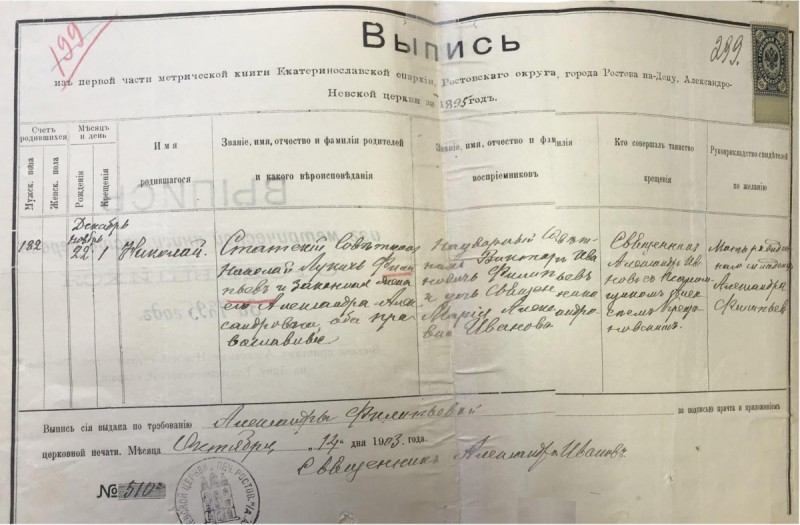 199
299.
Выпись
изъ первой части метрической книги Екатеринославской епархіи, Ростовскаго округа, города Ростова на-Дону, Александро-
Невской церкви за 1895 годъ.
Счетъ родившихся
Мужск. пола
Женск. пола
Мѣсяцъ и день
Рожденія
Крещенія
Имя
родившагося
Званіе, имя, отчество и фамилія родителей
и какого вѣроисповѣданія
Званіе, имя, отчество и фамилія
воспріемниковъ
Кто совершалъ таинство
крещенія
Рукоприкладство свидѣтелей
по желанію
182
Декабрь
Ноябрь
22
1
Николай.
Статскій Совѣтникъ
Николай Лукичъ Фили
пьевъ и законная жена
его Александра Алек
сандровна, оба пра
вославные
Надворный Совѣт
никъ Ива
новичъ Филипьевъ
и дочь Священника
Марія Александро
вна Иванова
Священникъ
Александръ Ив
новъ съ
Мать
младенца
Александра
Филипьева
Выпись сія выдана по требованію Александры Филипьевой за подписью причта и приложеніемъ
церковной печати. Мѣсяца Октября „14" дня 1903 года.
Священникъ Александръ Ивановъ
№ 510